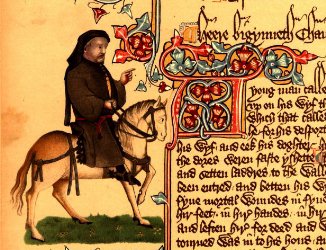 Heere bigynneth Chau
Yong man called
vp on his wyf
Which that called
he for his despor
his wyf and eek his doghter
the dores weren faste yshette
and setten laddres to the walle
been entred and betten his wy
fyue mortal woundes in fyue
hir feet in hir handes in hir
and leften hir for deed and
torned was in to his hous